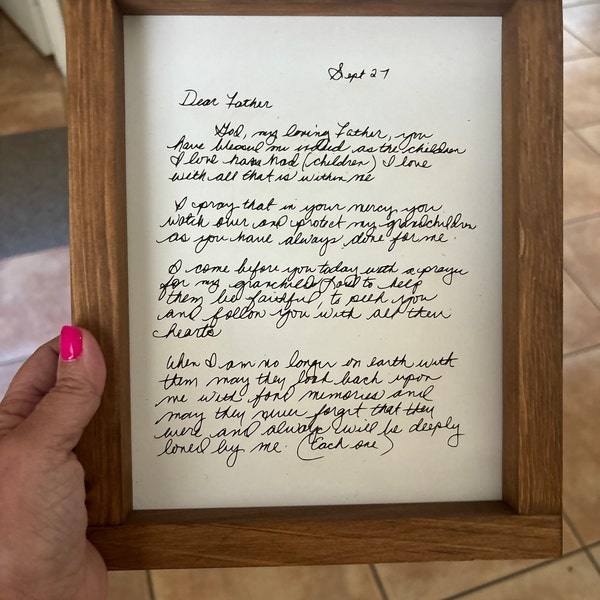 Sept 27
Dear Father
God, my loving Father, you
have blessed me indeed as the children
I love have had (children) I love
with all that is within me
I pray that in your mercy you
watch over and protect my grandchildren
as you have always done for me.
I come before you today with a prayer
for my granchildren to help
them be faithful, to seek you
and follow you with all their
hearts
When I am no longer on earth with
them may they look back upon
me with fond memories and
may they never forget that they
were and always will be deeply
loved by me. (Each one)